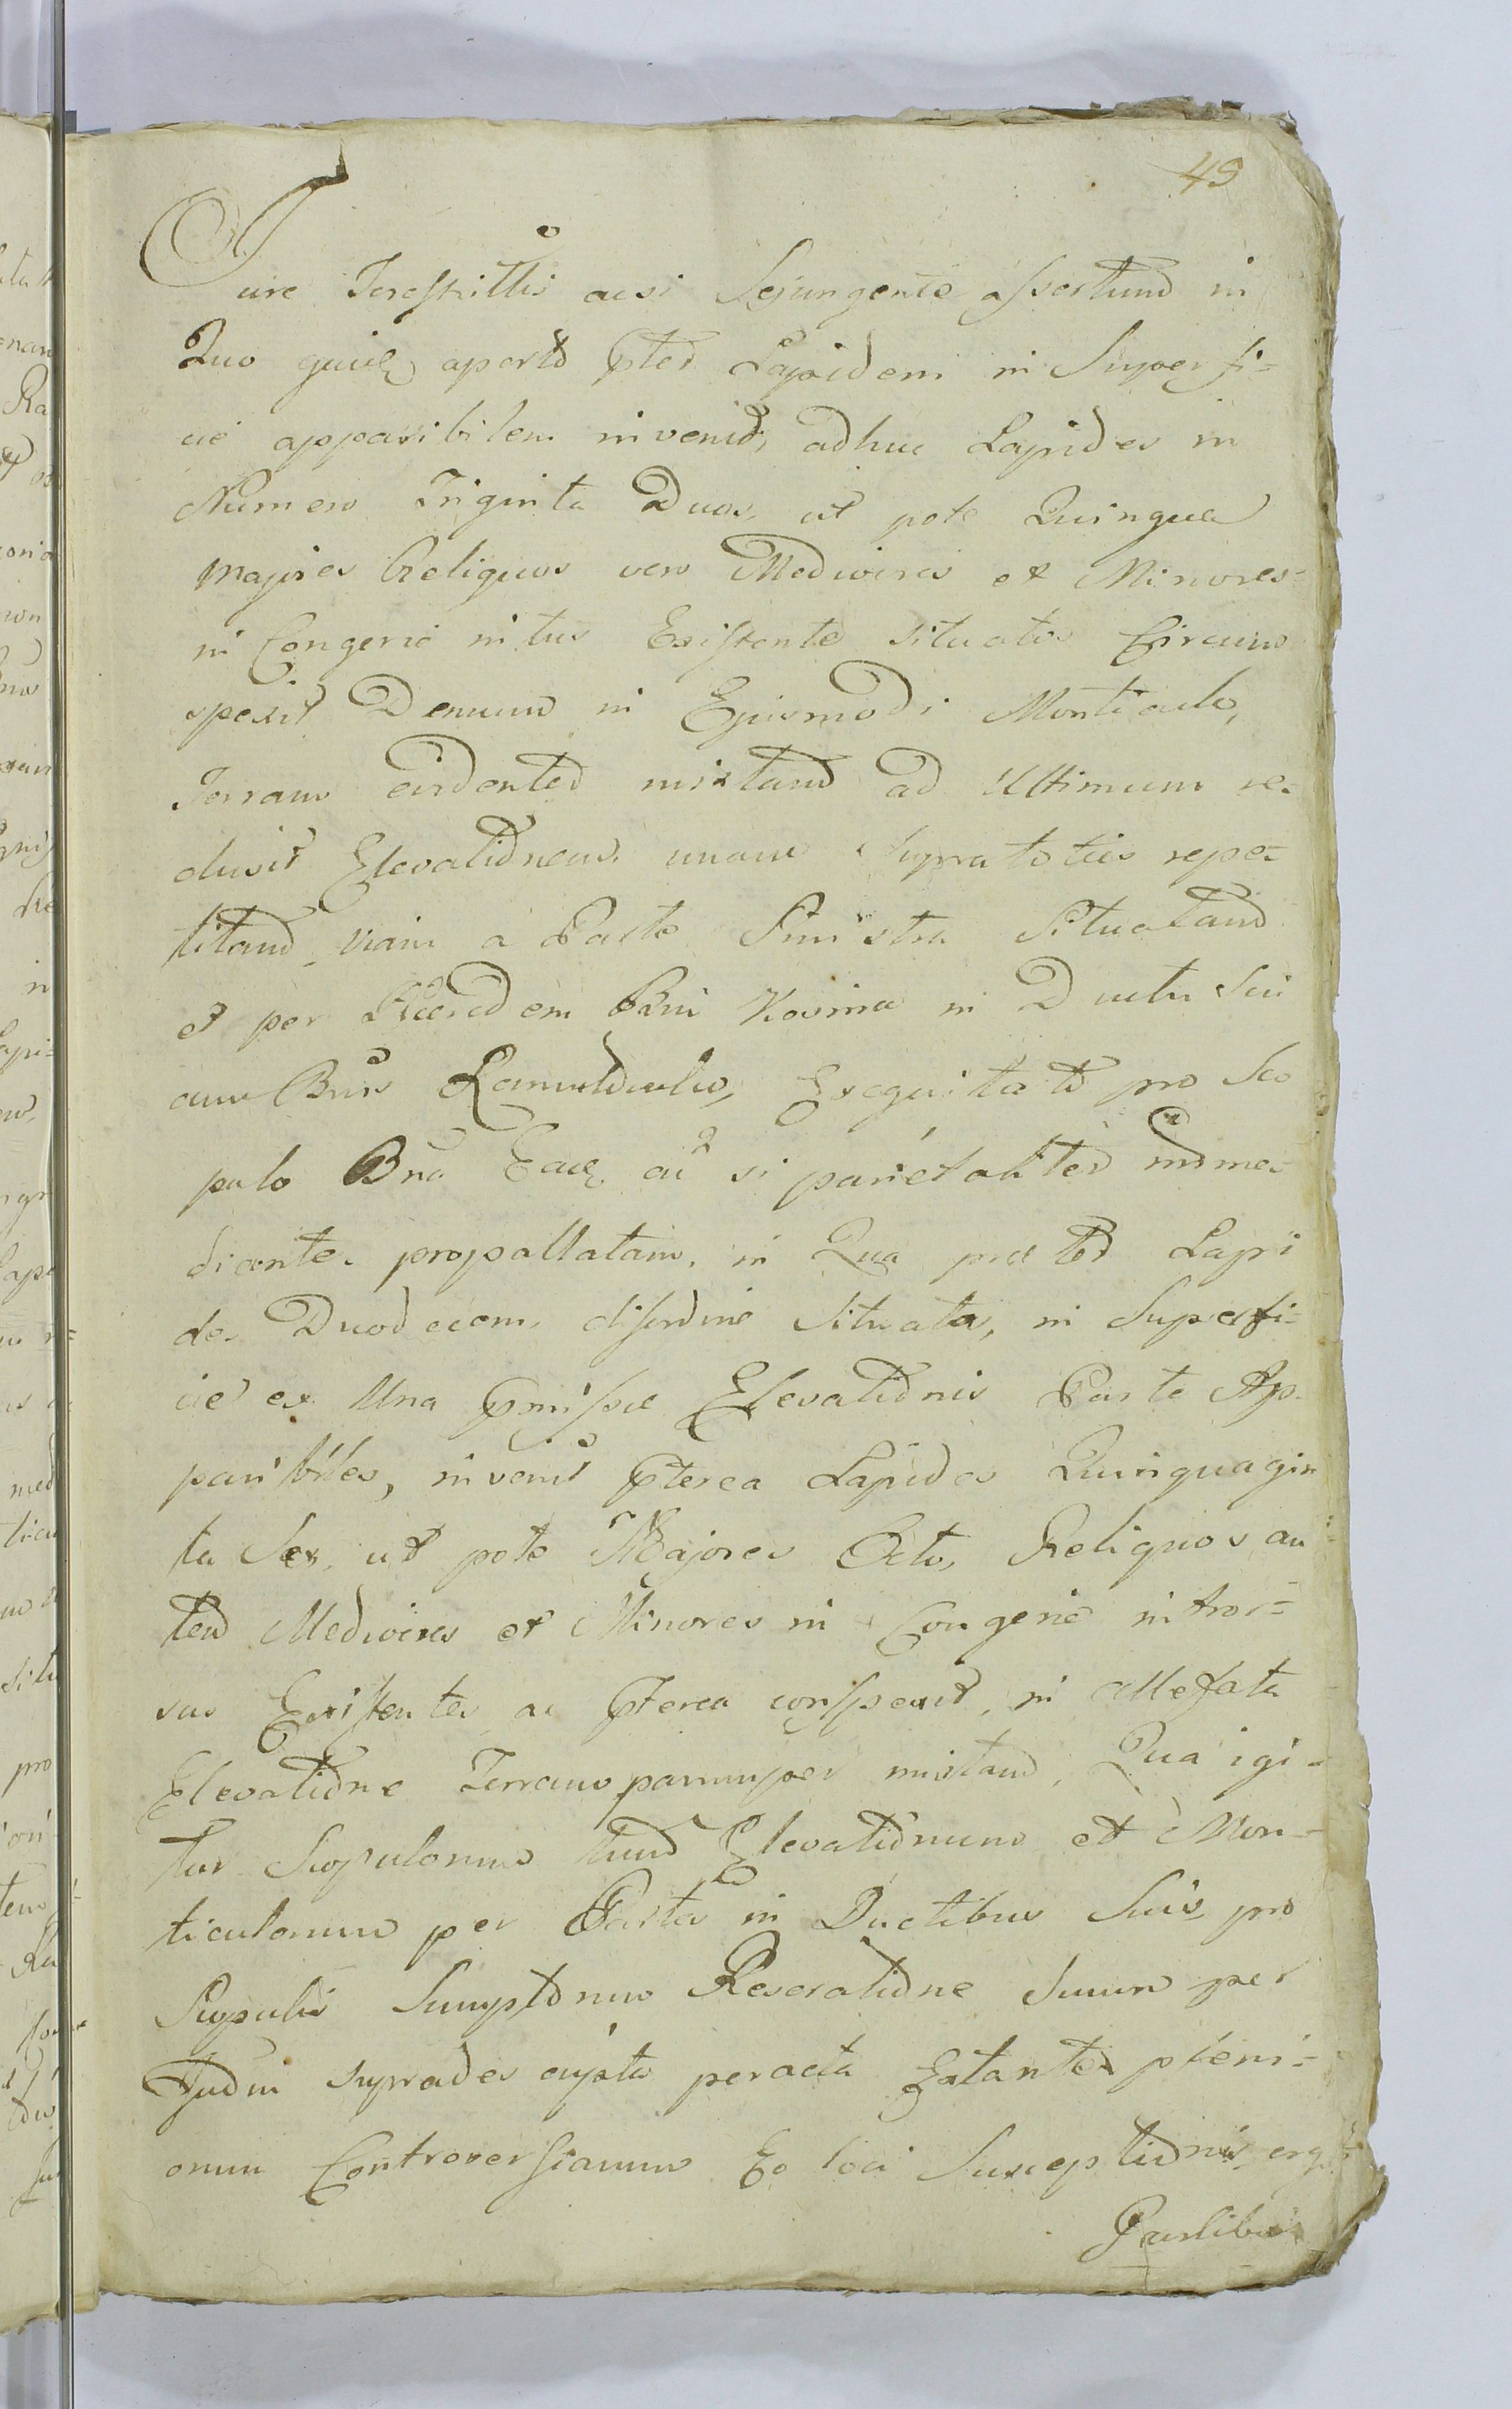 49
Jure Terestris acsi Sejungente assertum in
Quo quive aperto pter Lapidem in Superfi=
cie apparibilem invenit, adhuc Lapides in
Numero Triginta Duos, ut pote Quinque
majores Reliquos vero Mediocres et Minores
in Congerie intus Existente situatos Circum
spexit Demum in Ejusmodi Monticulo,
Terram evidenter mixtam ad Ultimum re=
clusit Elevationem unam Supra toties repe=
titam viam a Parte Sinistra Situatam
et per Heredem Bni Kosma in Ductu Sui
cum Bnis exequitato pro Sco
pulo Bna parietaliter
diante propallatam, in Qua praeter Lapi
des Duodecem disordine Situatos, in Superfi=
cie ex Una pmissae Elevationis Parte Ap=
paribiles, invenit pterea Lapides Quinquagin
ta Sex, ut pote Majores Octo, Reliquos au
tem Mediocres et Minores in Congerie intror=
sus Existentes ac pterea conspexit, in allefata
Elevatione Terram parumper mixtam, Qua igi=
tur Scopulorum tum Elevationum et Mon=
ticulorum per Partes in Ductibus Suis, pro
Scopulis Sumptorum Reseratione Suum per
Judm supradescripta peracta Extante pleni=
orum Controversiarum Eo loci Susceptionis erga
Partibus